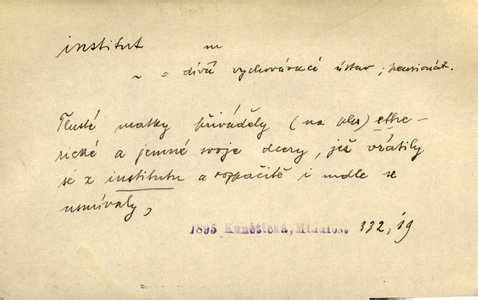 institut m
~ = dívčí vychovávací ústav, pensionát.
Tlusté matky přiváděly (na ples) ethe-
rické a jemné svoje dcery, již vrátily
se z institutu a rozpačitě i mdle se
usmívaly,
1895 Kunětická, Minulost 332,19